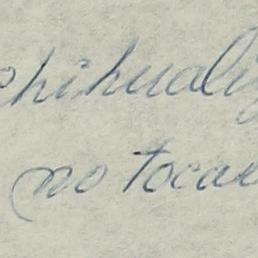 chihuali
no tocar